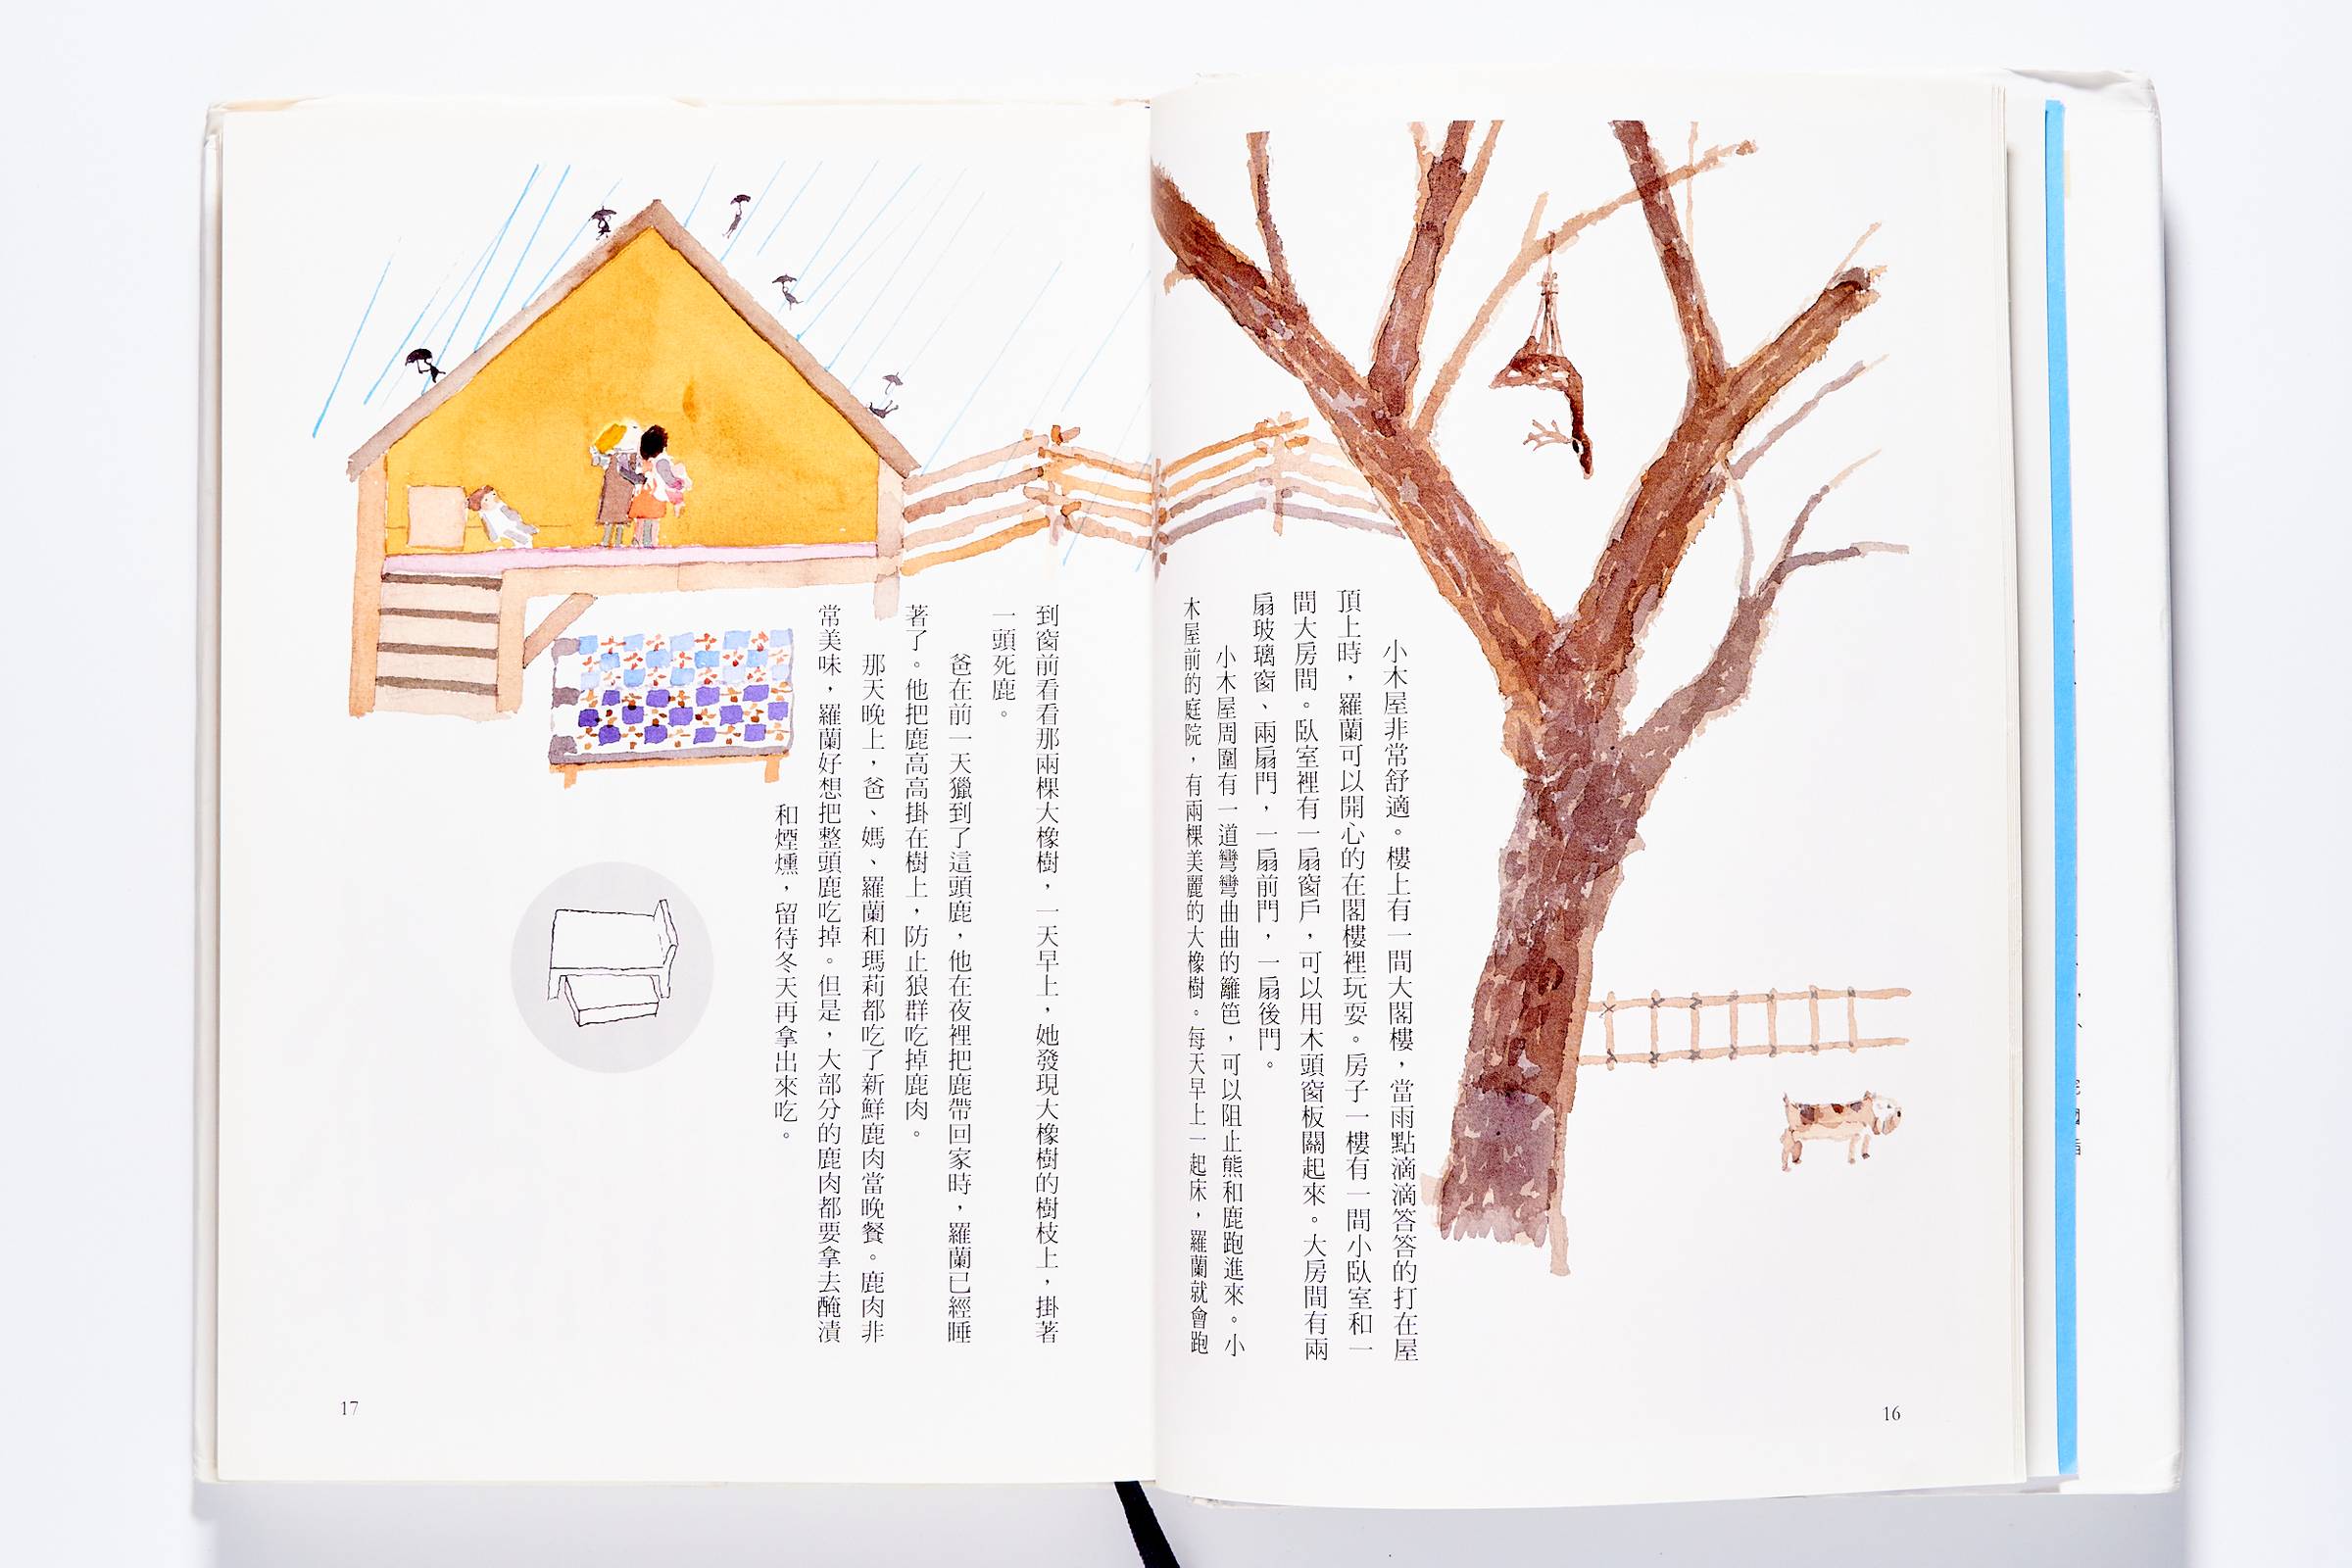 小木屋非常舒適。樓上有一間大閣樓，當雨點滴滴答答的打在屋
頂上時，羅蘭可以開心的在閣樓裡玩耍。房子一樓有一間小臥室和一
間大房間。臥室裡有一扇窗戶，可以用木頭窗板關起來。大房間有兩
扇玻璃窗、兩扇門，一扇前門，一扇後門。
小木屋周圍有一道彎彎曲曲的籬笆，可以阻止熊和鹿跑進來。小
木屋前的庭院，有兩棵美麗的大橡樹。每天早上一起床，羅蘭就會跑
16
到窗前看看那兩棵大橡樹，一天早上，她發現大橡樹的樹枝上，掛著
一頭死鹿。
爸在前一天獵到了這頭鹿，他在夜裡把鹿帶回家時，羅蘭已經睡
著了。他把鹿高高掛在樹上，防止狼群吃掉鹿肉。
那天晚上，爸、媽、羅蘭和瑪莉都吃了新鮮鹿肉當晚餐。鹿肉非
常美味，羅蘭好想把整頭鹿吃掉。但是，大部分的鹿肉都要拿去醃漬
和煙燻，留待冬天再拿出來吃。
17